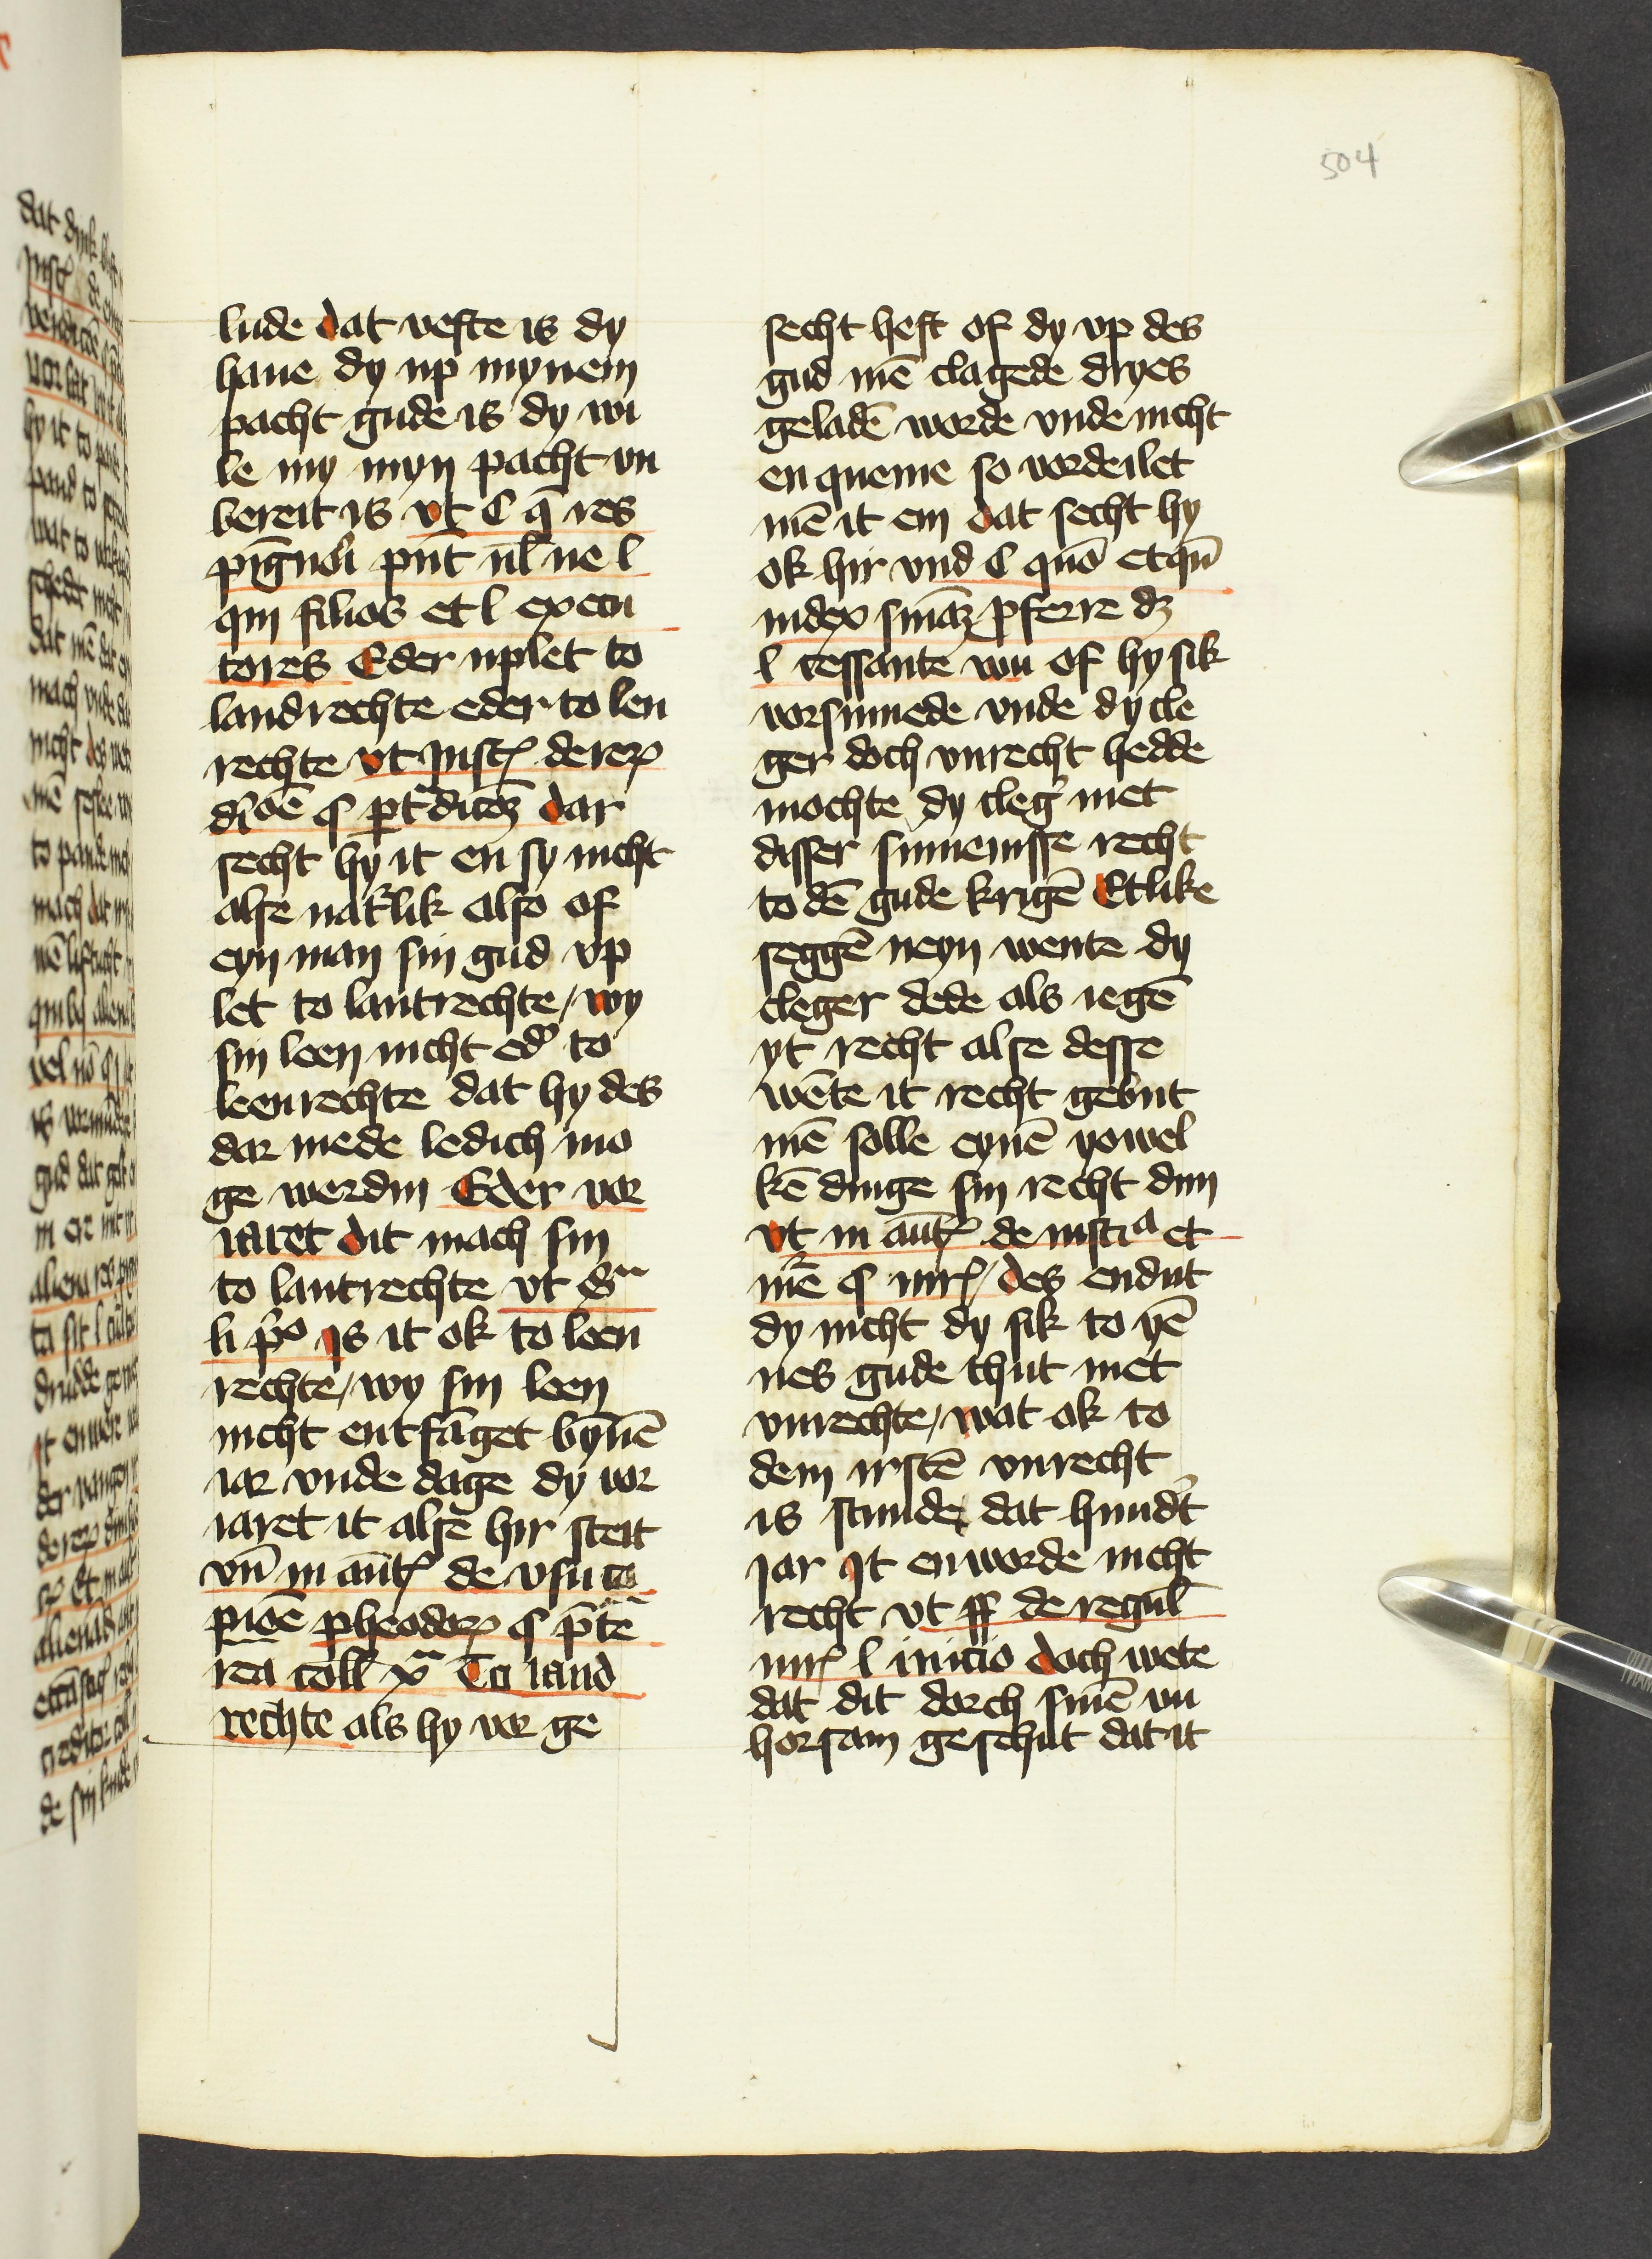 504
lude dat veste is dy
haue dy up mynem
pacht gude is dy wi
le my myn pacht vn
bereit is vt C q̄ res
pīgnōi pnt̄ ul̄ ne l
qui filios et l execu
tores Eder uplet to
landrechte eder to len
rechte vt Inst de rerꝝ
dīoē § p̄t dicōꝫ dar
secht hy it en sy nicht
alse natͬlik also of
eyn man sin gud vp
let to lantrechte / wy
sin leen nicht ed̄ to
leenrechte dat hy des
dar mede ledich mo
ge werdin Eder vor
iaret dit mach sin
to lantrechte vt s
li pͦo Is it ok to leen
rechte / wy sin leen
nicht entfāget bynnē
iar vnde dage dy vor
iaret it alse hir steit
vn̄ in aut̄ de vsu ca
pioē pheodorꝝ § p̄te
rea coll x To land
rechte als hy vor ge
secht heft of dy vp des
gud mē clagede dryes
geladē worde vnde nicht
en queme so vordeilet
mē it em dat secht hy
ok hir vnd C quō et qn̄
iudex sniāꝫ pferre dꝫ
l cessante wu of hy sik
vorsumede vnde dy cle
ger doch vnrecht hedde
mochte dy cleg̉ met
disser sumenisse recht
to dē gude krigē Etlike
seggē neyn wente dy
cleger dede als iegē
yt recht alse desse
wēte it recht gebut
mē solle eynē yowel
kē dinge sin recht dun
vt in aut̄ de instᵃ et
mē § nirꝭ / des endut
dy nicht dy sik to yē
nes gude thut met
vnrechte / wat ok to
dem irstē vnrecht
is stunde dat hundt̉
Jar It en worde nicht
recht vt ff de regul̄
iurꝭ l inicio doch wete
dat dit dorch sinē vn
horsam geschut dat it